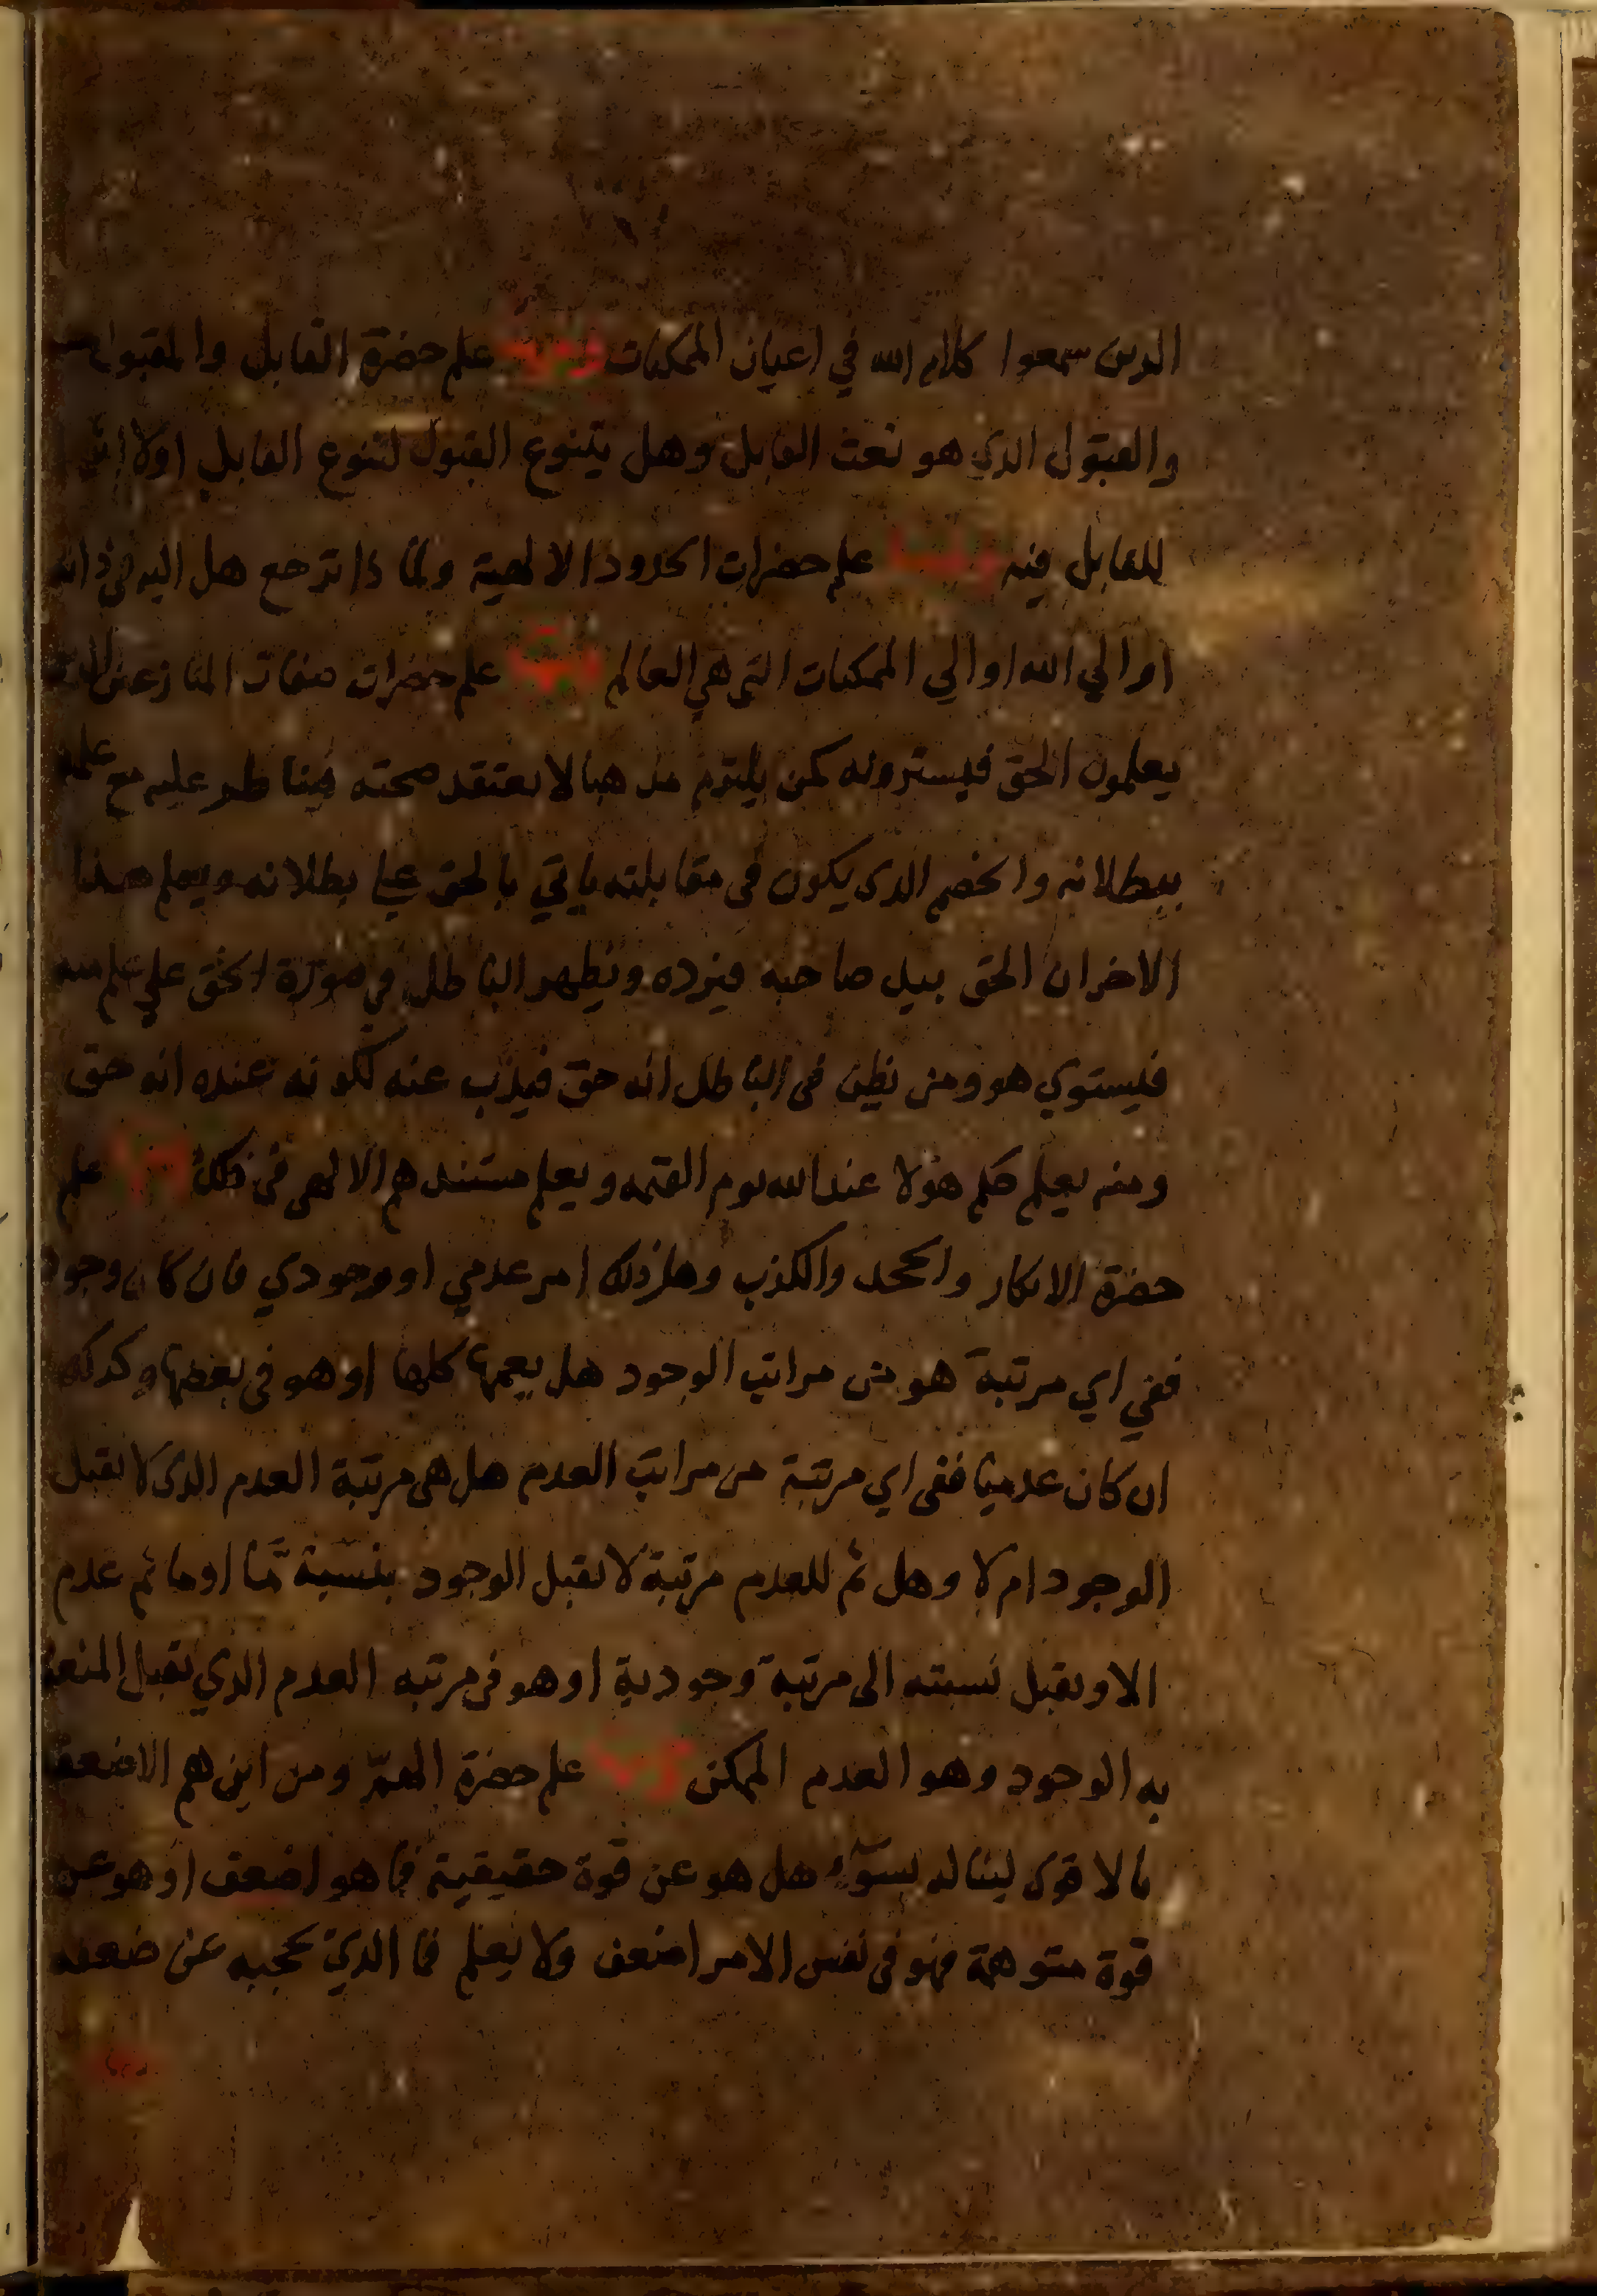 الدين سمعوا كلام الله في اعيان الممكنات ومنها علم حضرة القابل والمقبول
والقبول الذي هو نعت القابل وهل يتنوع القبول لتنوع القابل اولا
للقابل فيه ومنها علم حضرات الحدود الالهية ولما ذا ترجع هل اليه في ذاته
او الي الله او الي الممكنات التي هي العالم ومنها علم حضرات صفات المنازعين
يعلمون الحق فيسترونه كمن يلتزم مذهبا لا يعتقد صحته فيناظر عليه مع علمه
ببطلانه والخصم الذي يكون في مقابلته ياتي بالحق علي بطلانه ويعلم هذا
الاخران الحق بيد صاحبه فيرده ويظهر الباطل في صورة الحق علي علم منه
فيستوي هو ومن يظن في الباطل انه حق فيذب عنه لكونه عنده انه حق
ومنه يعلم حكم هؤلا عند الله يوم القيمة ويعلم مستندهم الالهي في ذلك ومنها علم
حضرة الانكار والجحد والكذب وهل ذلك امر عدمي او وجودي فان كان وجود
ففي اي مرتبة هو من مراتب الوجود هل يعمها كلها او هو في بعضها وكذلك
ان كان عدميا ففي اي مرتبة من مراتب العدم هل هي مرتبة العدم الذي لا يقبل
الوجود ام لا وهل ثم للعدم مرتبة لا تقبل الوجود بنسبة ما او ما ثم عدم
الا ويقبل نسبته الى مرتبة وجودية او هو في مرتبه العدم الذي يقبل المنعة
به الوجود وهو العدم الممكن ومنها علم حضرة الهم ومن اين هم الاضعف
بالاقوى لينا له بسوء هل هو عن قوة حقيقية فما هو اضعف او هو عن
قوة متوهمة فهو في نفس الامر اضعف ولا يعلم فما الذي يحجبه عن ضعفه
ومنها